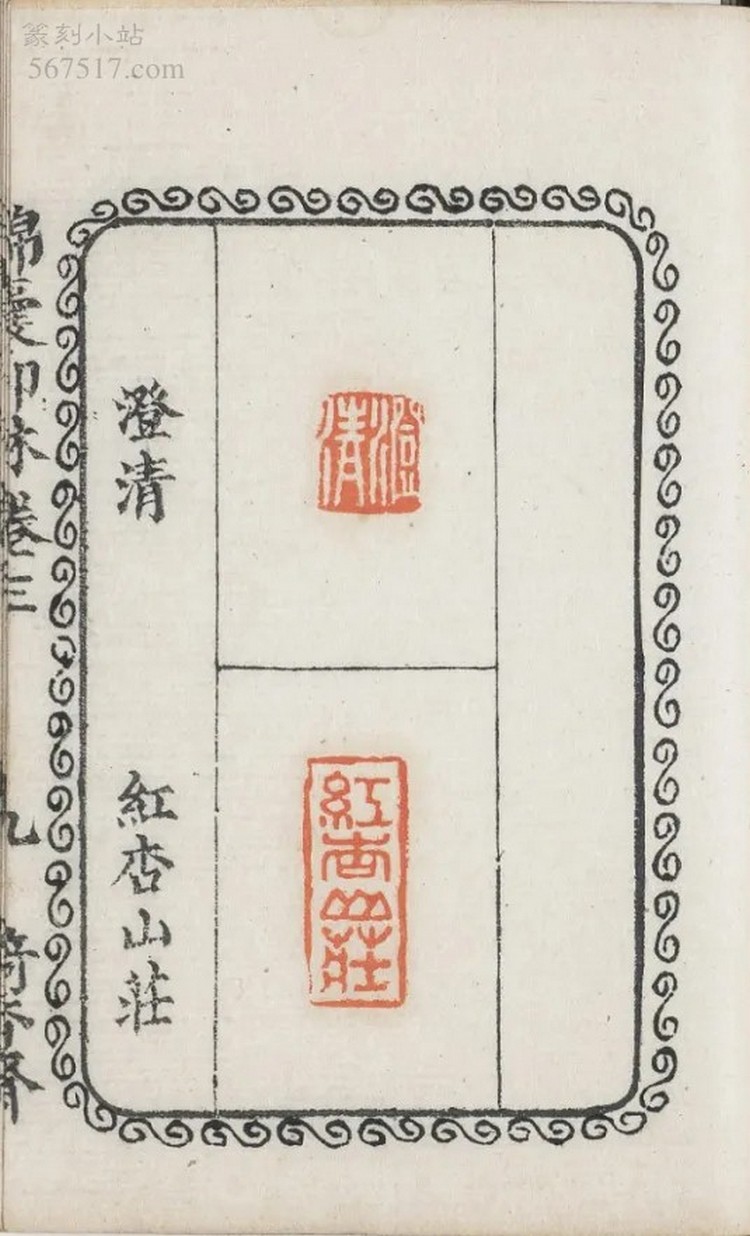 篆刻小站
567517.com
澄清
澄清
紅杏山莊
紅杏山莊
卷三
九